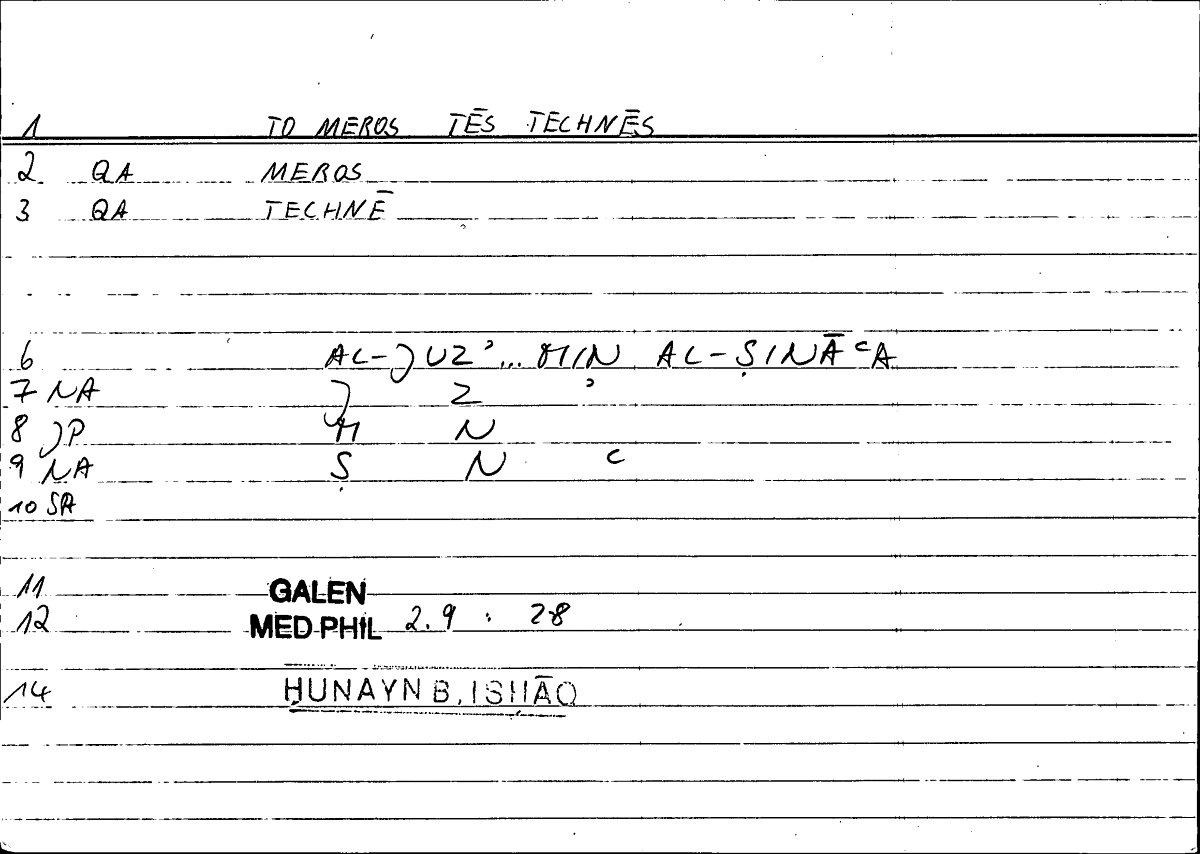 1 TO MEROS TĒS TECHNĒS
2 QA MEROS
3 QA TECHNĒ
6 AL-JUZʾ... MIN AL-ṢINĀʿA
7 NA J Z ʾ
8 JP M N
9 NA Ṣ N ʿ
10 SA
11 GALEN
12 MED PHIL 2.9 : 28
14 ḤUNAYN B. ISḤĀQ